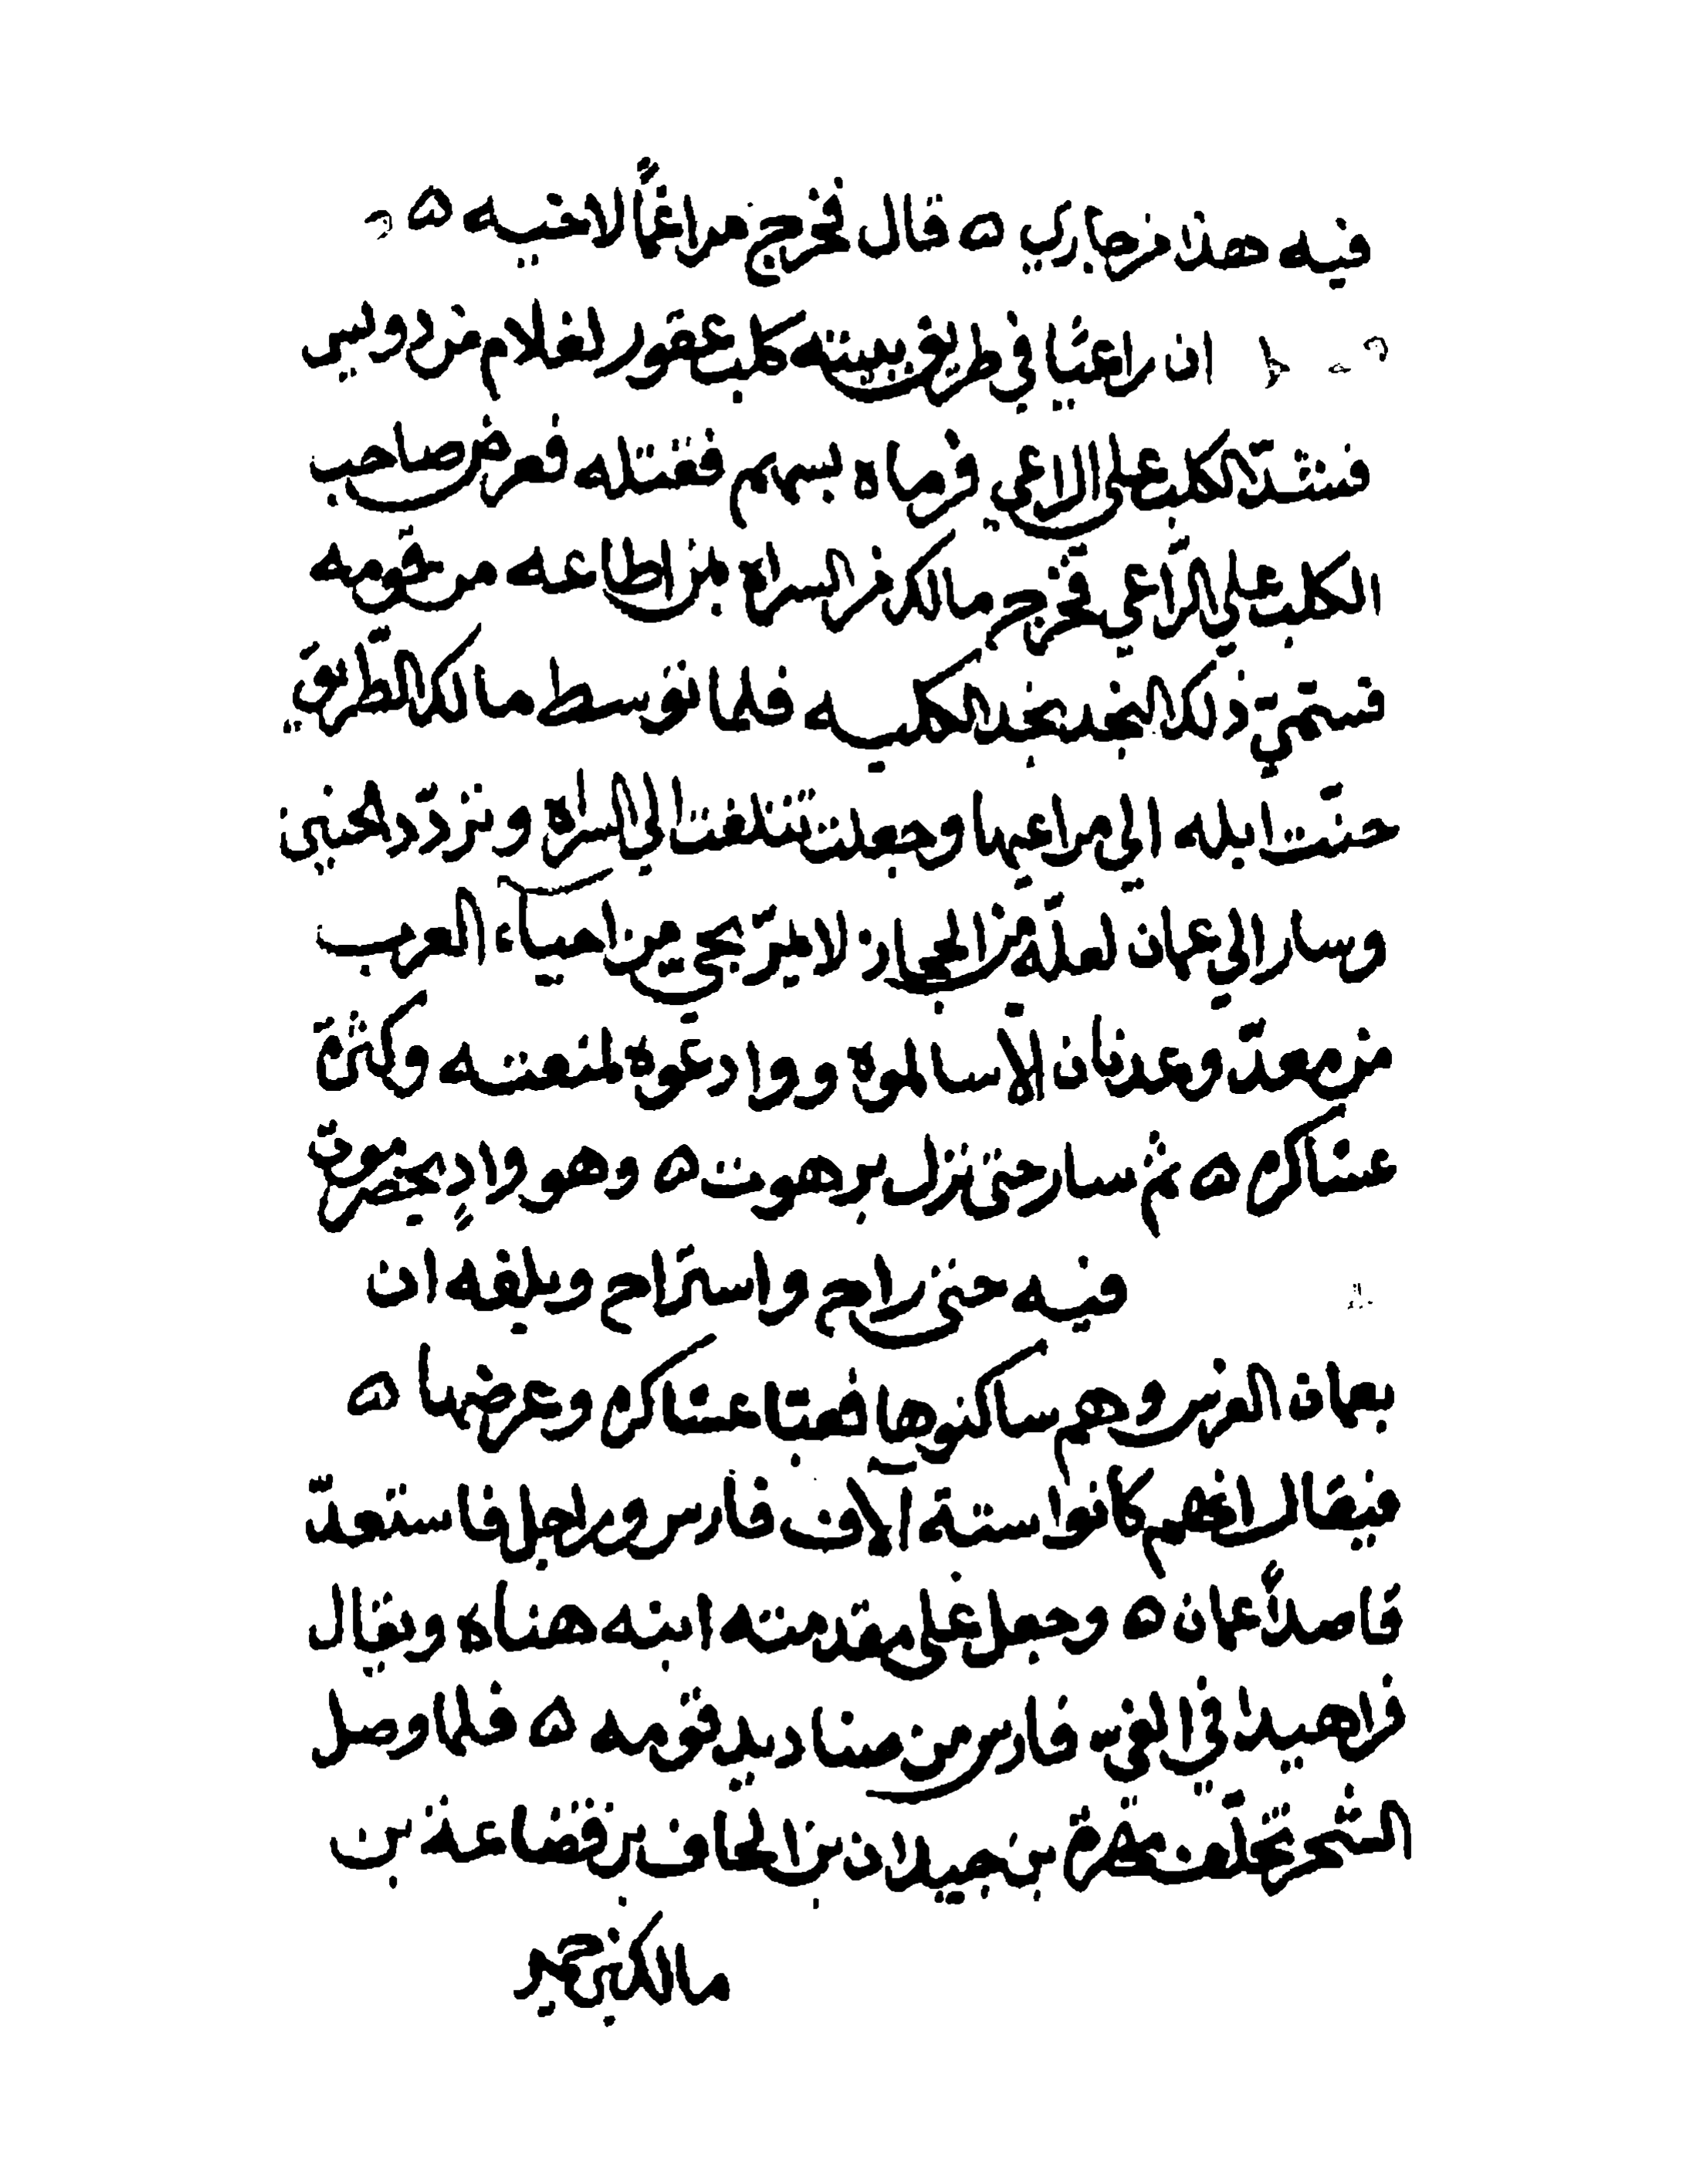 فيه هذا من جاري ه قال فخرج مراغمًا لاخيه ه
ان راعيا في طريق بيته كلب عقور لغلام من دوس
فشدّ الكلب على الراعي فرماه بسهم فقتله فعرض صاحب
الكلب علي الرّاعي فخرج مالك من السراة بمن اطاعه من قومه
فسمّي ذلك النجد نجد الكلبه فلما توسط مالك الطّريق
حنّت ابله الي مراعيها وجعلت تتلفت الي السراة وتردّد الحنين
وسار الي عمان لعلّه من الحجاز لا يمرّ بحي من احياء العرب
من معدّ وعدنان الا سالموه ووادعوه لمنعته وكثرة
عساكره ه ثم سار حتى نزل برهوت ه وهو وادٍ بحضرموت
فيه حتى راح واستراح وبلغه ان
بعمان الفرس وهم ساكنوها فعبّا عساكره وعرضها ه
فيقال انهم كانوا ستة آلاف فارس وراجل فاستعدّ
قاصدًا عمان ه وجعل على مقدمته ابنه هناه ويقال
فراهيدا في الفي فارس من صناديد قومه ه فلما وصل
الشحر تخلّفت مهرة بن حيدان بن الحاف بن قضاعة بن
مالك بن حمير